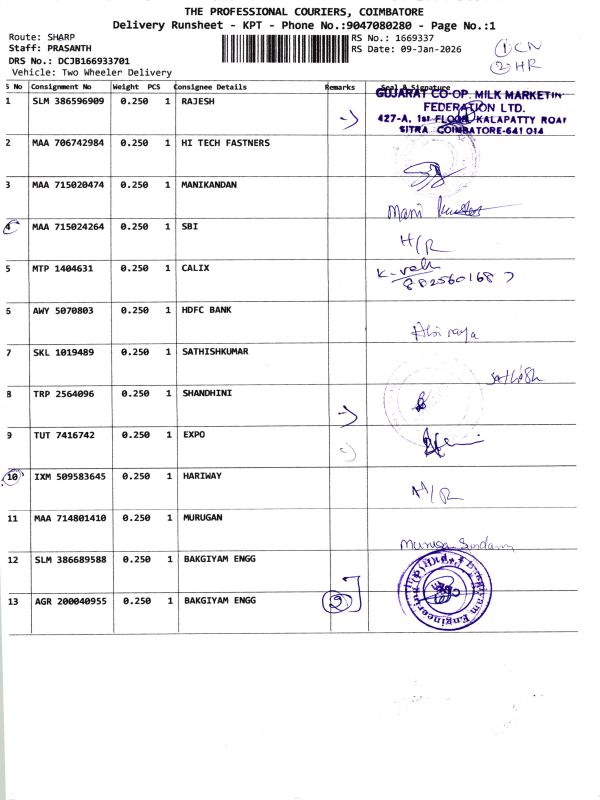 THE PROFESSIONAL COURIERS, COIMBATORE
Delivery Runsheet - KPT - Phone No.:9047080280 - Page No.:1
Route: SHARP
RS No.: 1669337
Staff: PRASANTH
RS Date: 09-Jan-2026
① CN
② HR
DRS No.: DCJB166933701
Vehicle: Two Wheeler Delivery
S No Consignment No Weight PCS Consignee Details Remarks Seal & Signature
1 SLM 386596909 0.250 1 RAJESH
GUJARAT CO-OP. MILK MARKETIN
FEDERATION LTD.
427-A, 1st FLOOR, KALAPATTY ROA
SITRA COIMBATORE-641 014
2 MAA 706742984 0.250 1 HI TECH FASTNERS
3 MAA 715020474 0.250 1 MANIKANDAN
Mani
4 MAA 715024264 0.250 1 SBI
H/R
5 MTP 1404631 0.250 1 CALIX
8825601687
6 AWY 5070803 0.250 1 HDFC BANK
Abinaya
7 SKL 1019489 0.250 1 SATHISHKUMAR
Sathish
8 TRP 2564096 0.250 1 SHANDHINI
9 TUT 7416742 0.250 1 EXPO
10 IXM 509583645 0.250 1 HARIWAY
H/R
11 MAA 714801410 0.250 1 MURUGAN
Muruga Sundaram
12 SLM 386689588 0.250 1 BAKGIYAM ENGG
13 AGR 200040955 0.250 1 BAKGIYAM ENGG
2
Bagiyam Engineering